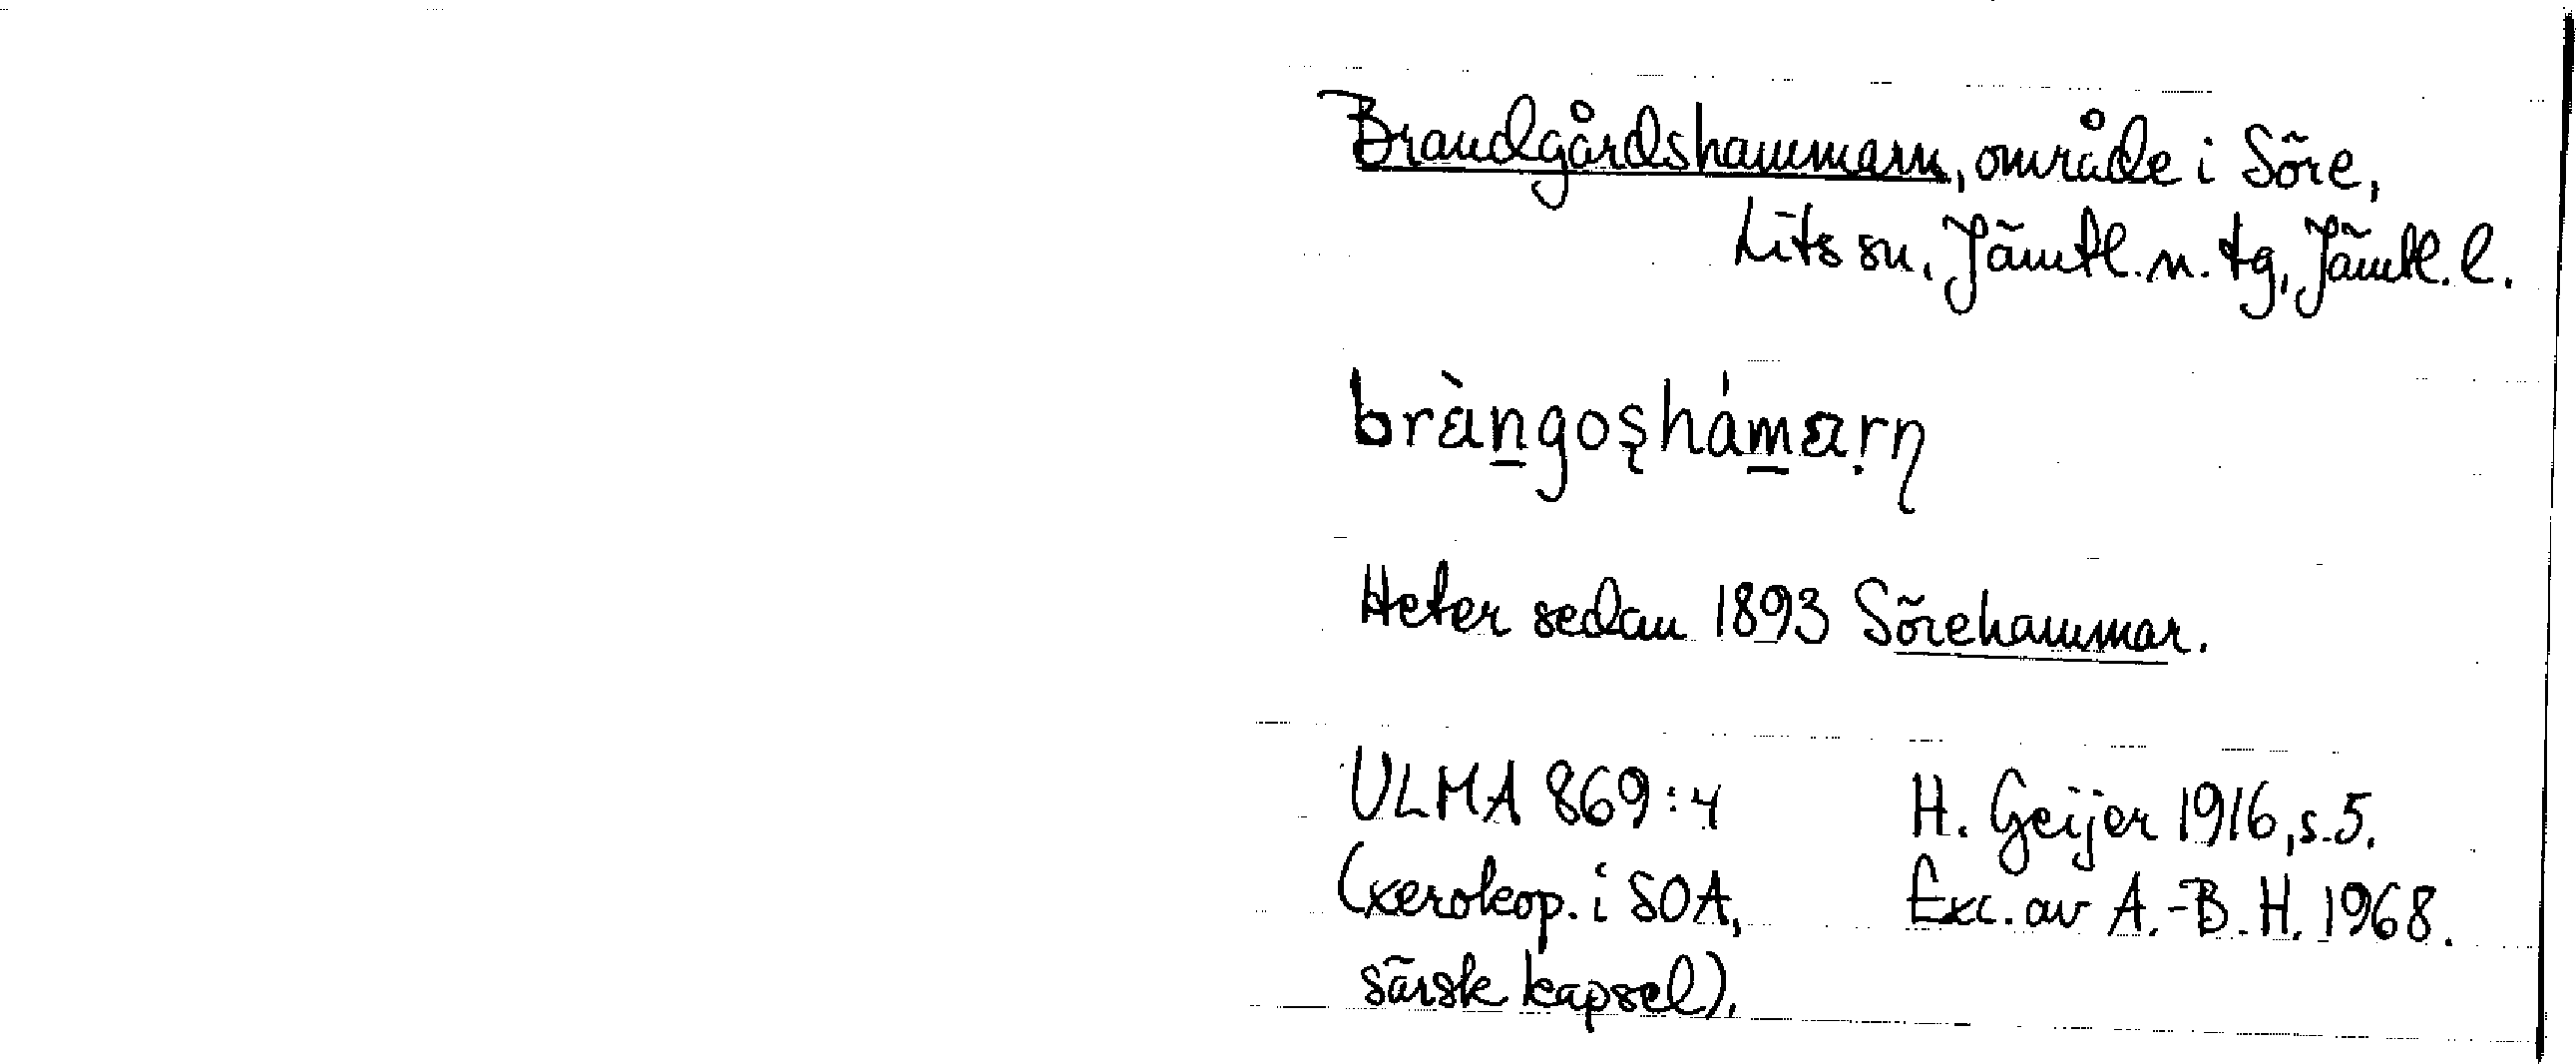 Brandgårdshammarn, område i Söre,
Lits sn, Jämtl. n. tg, Jämtl. l.
bràn̲goşhám̲arṇ
Heter sedan 1893 Sörehammar.
ULMA 869:4 H. Geijer 1916, s. 5.
(xerokop. i SOA, Exc. av A.-B. H. 1968.
särsk kapsel).